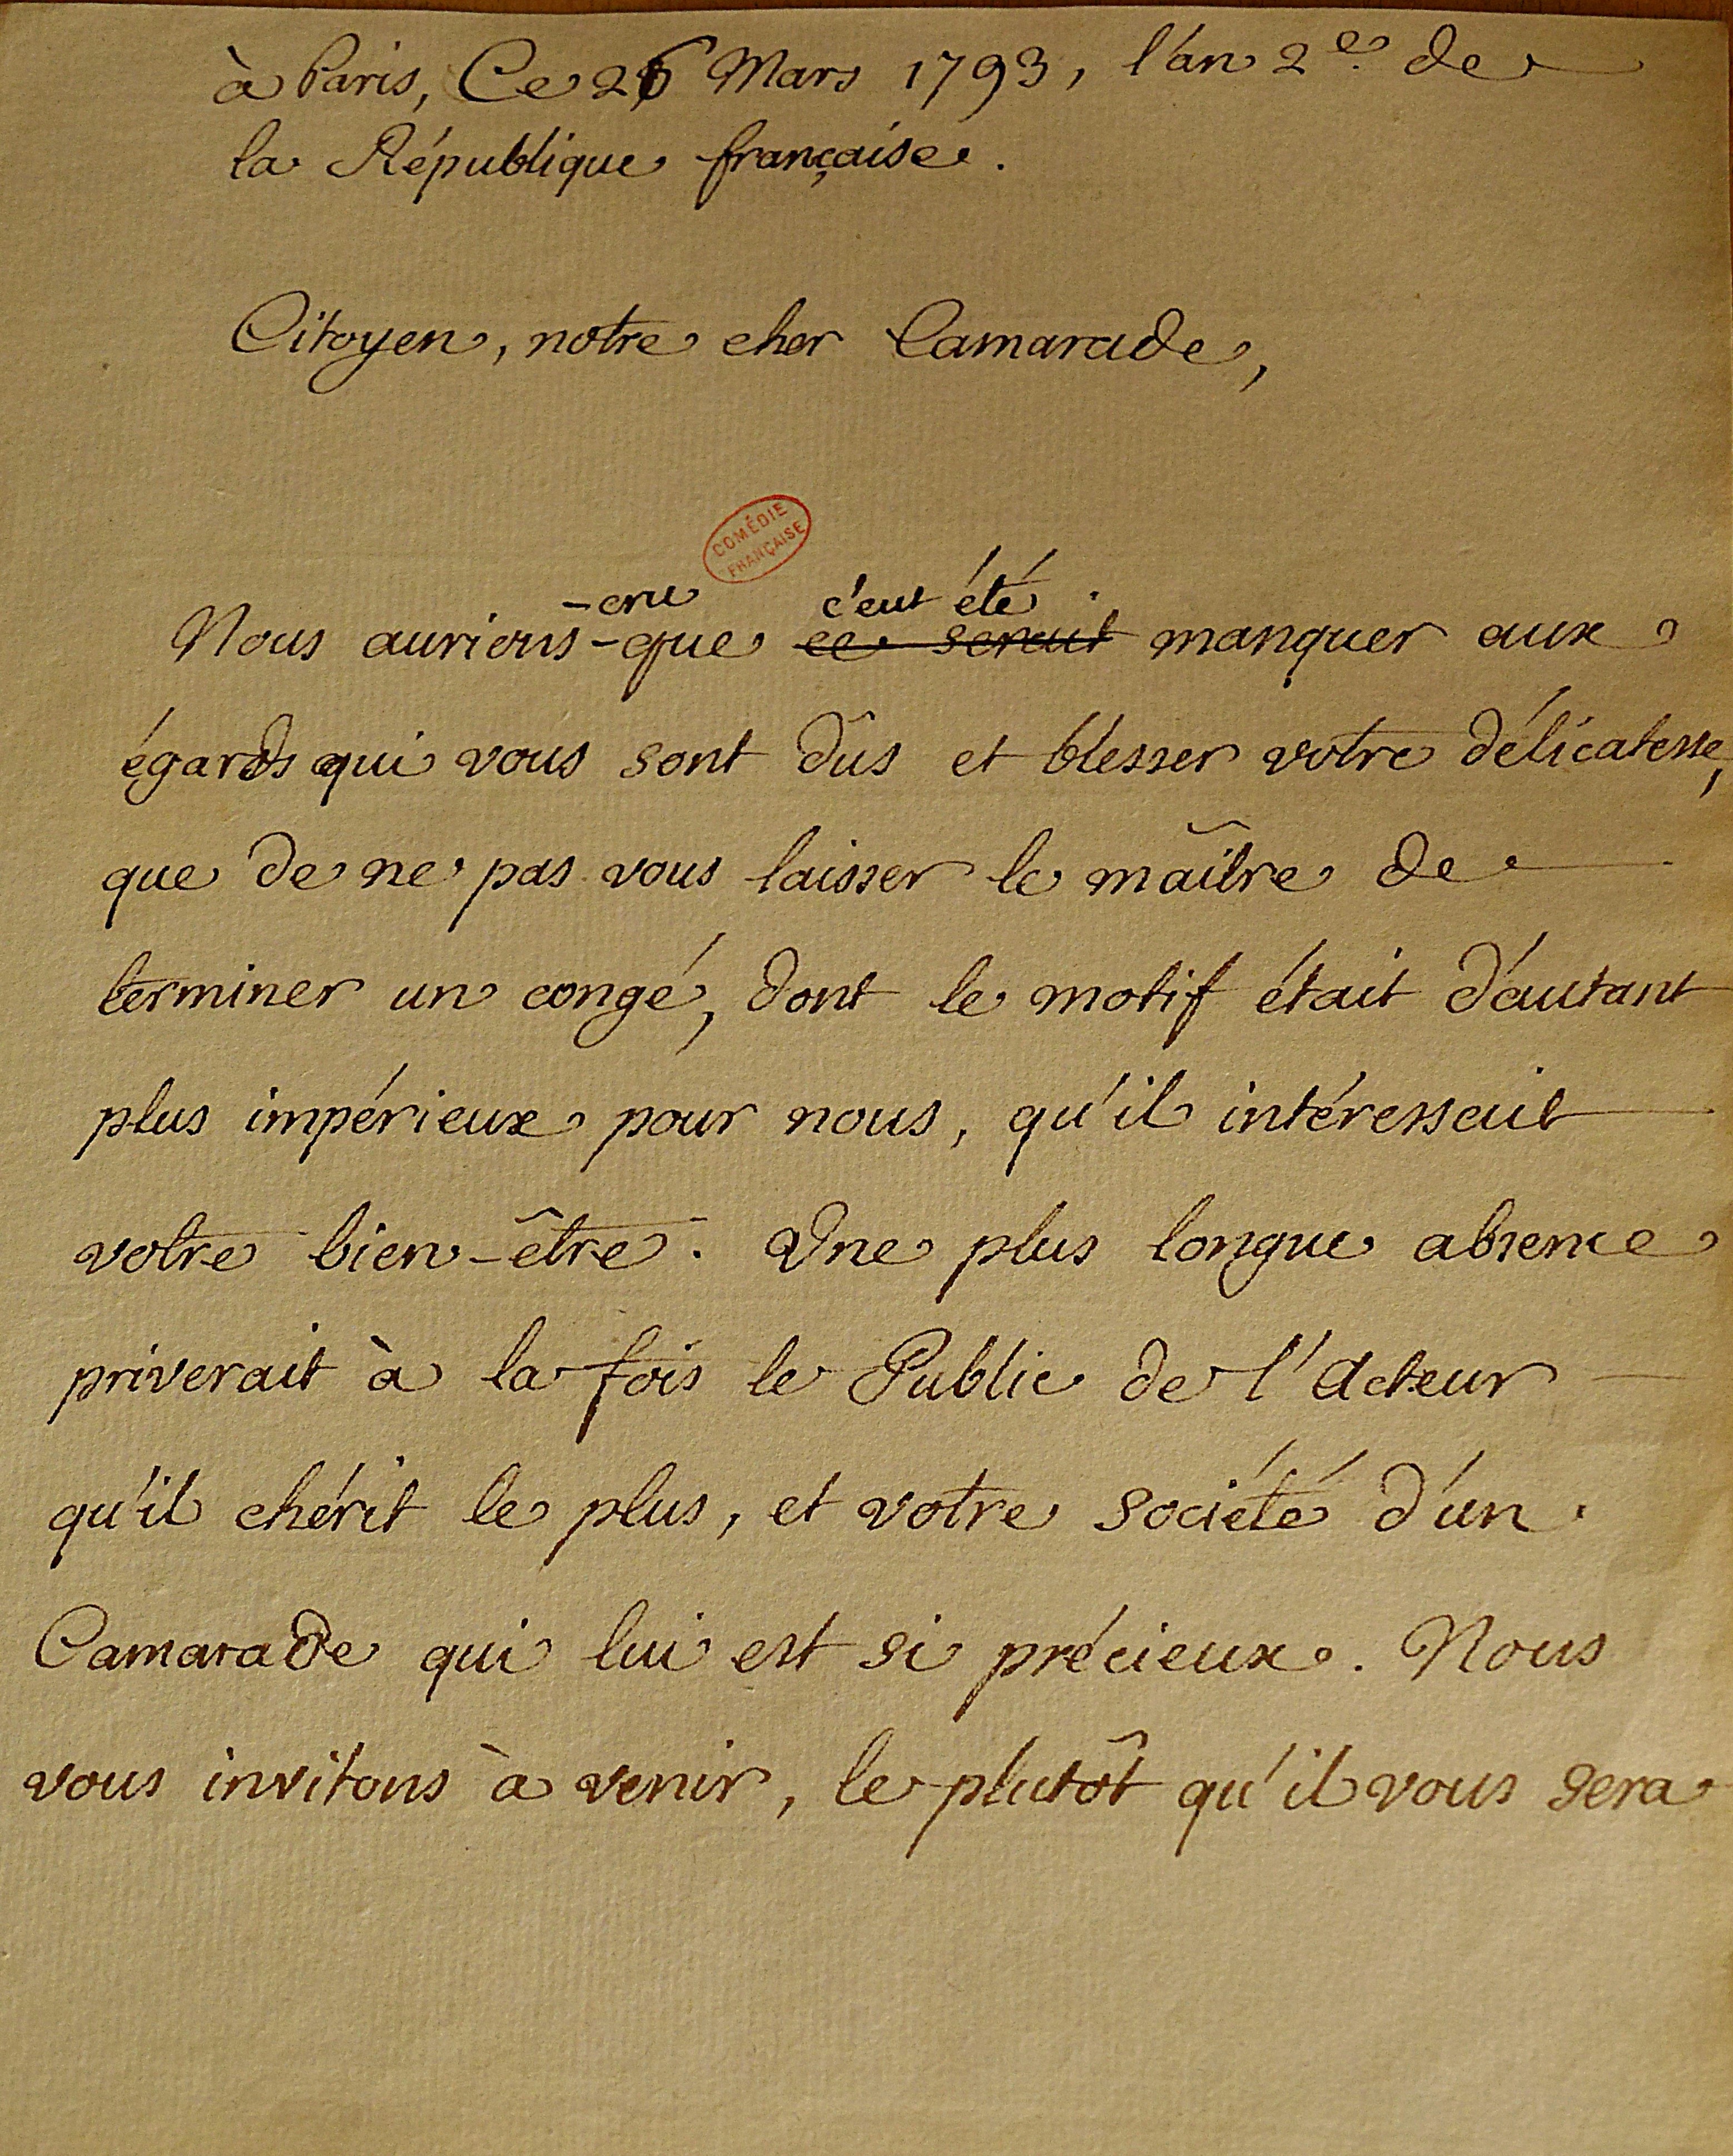 à Paris, Ce 26 Mars 1793, l'an 2e. de
la République française.
Citoyen, notre cher Camarade,
COMÉDIE
FRANÇAISE
-cru c'eut été
Nous aurions-que ce serait manquer aux
égards qui vous sont dûs et blesser votre délicatesse,
que de ne pas vous laisser le maître de
terminer un congé, dont le motif était d'autant
plus impérieux pour nous, qu'il intéressait
votre bien-être. Une plus longue absence
priverait à la fois le Public de l'Acteur
qu'il chérit le plus, et votre société d'un
Camarade qui lui est si précieux. Nous
vous invitons à venir, le plutôt qu'il vous sera